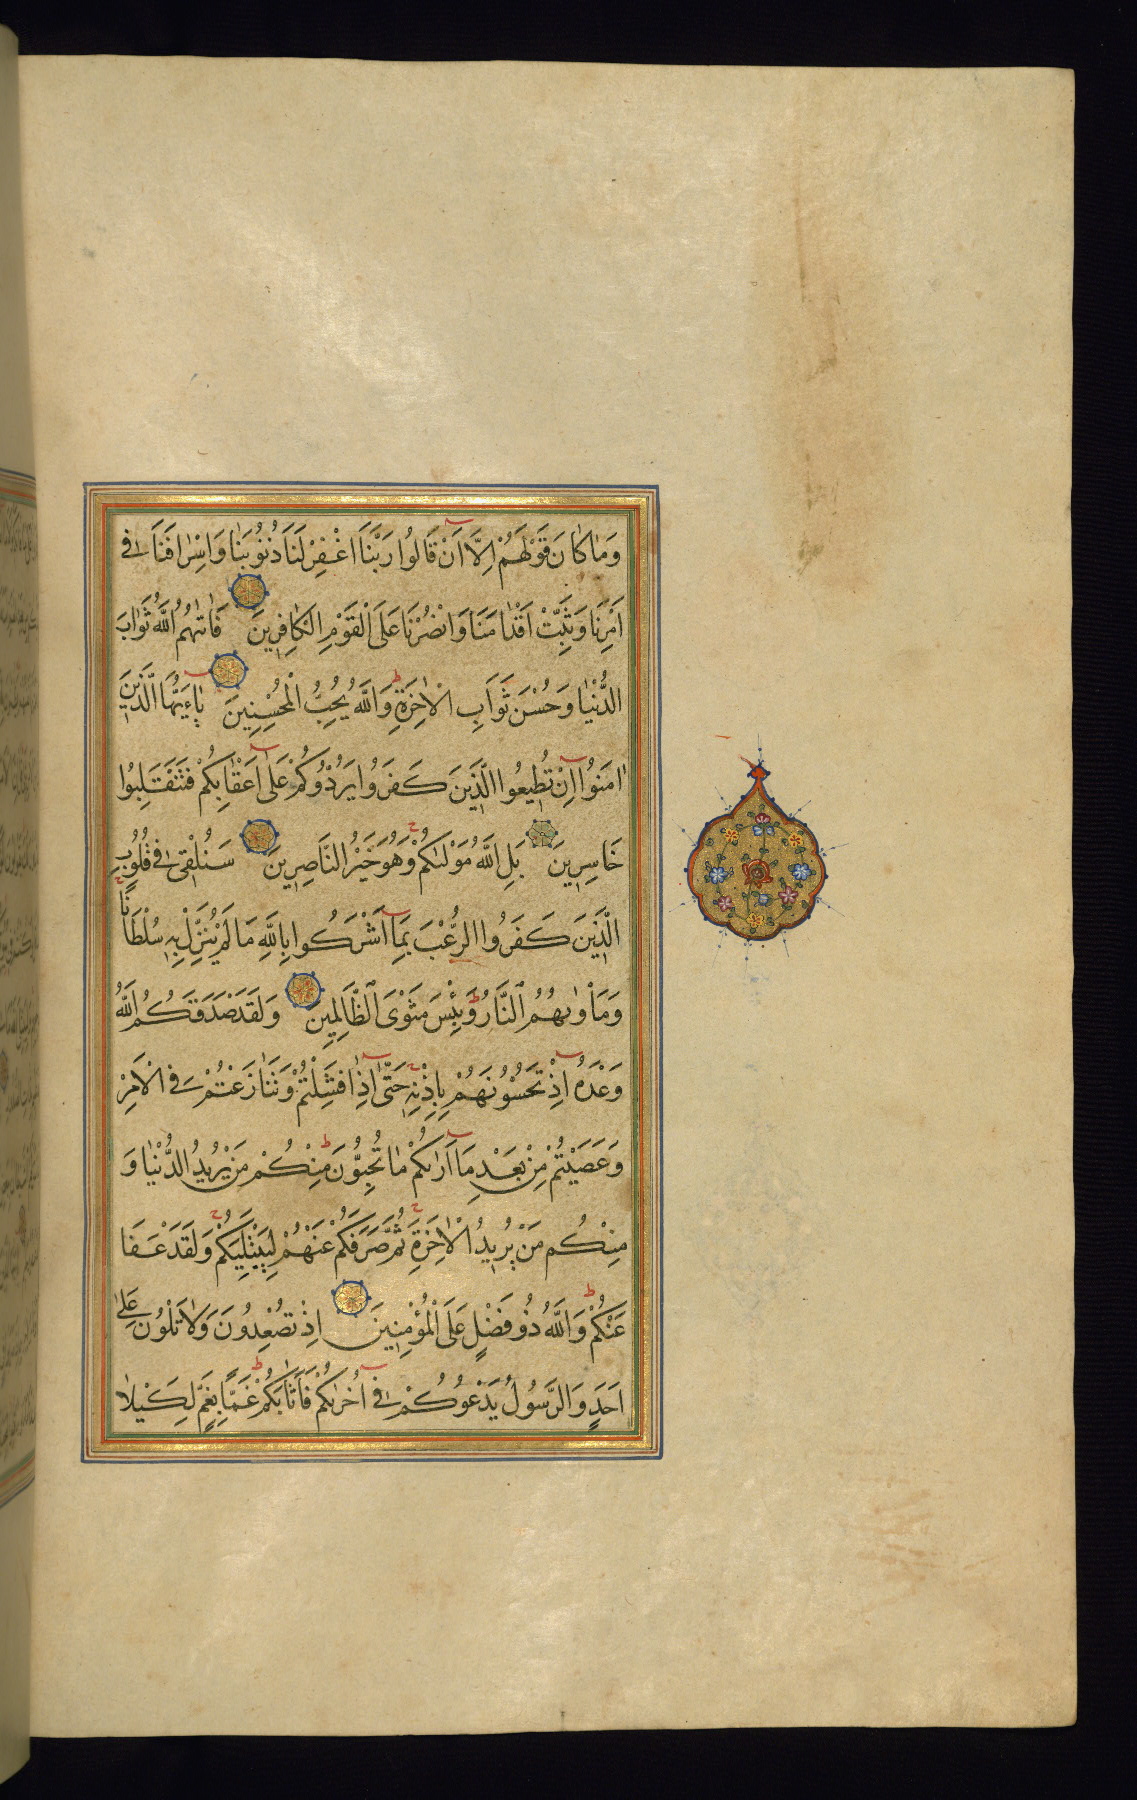 وَمَا كَانَ قَوْلَهُمْ اِلَّا اَنْ قَالُوا رَبَّنَا اغْفِرْ لَنَا ذُنُوبَنَا وَاِسْرَافَنَا فِى
اَمْرِنَا وَثَبِّتْ اَقْدَامَنَا وَانْصُرْنَا عَلَى الْقَوْمِ الْكَافِرِينَ فَاٰتٰيهُمُ اللّٰهُ ثَوَابَ
الدُّنْيَا وَحُسْنَ ثَوَابِ الْاٰخِرَةِ وَاللّٰهُ يُحِبُّ الْمُحْسِنِينَ يٰاءَيُّهَا الَّذِينَ
اٰمَنُوا اِنْ تُطِيعُوا الَّذِينَ كَفَرُوا يَرُدُّوكُمْ عَلٰى اَعْقَابِكُمْ فَتَنْقَلِبُوا
خَاسِرِينَ بَلِ اللّٰهُ مَوْلٰيكُمْ وَهُوَ خَيْرُ النَّاصِرِينَ سَنُلْقِى فِى قُلُوبِ
الَّذِينَ كَفَرُوا الرُّعْبَ بِمَا اَشْرَكُوا بِاللّٰهِ مَا لَمْ يُنَزِّلْ بِهِ سُلْطَانًا
وَمَاْوٰيهُمُ النَّارُ وَبِئْسَ مَثْوَى الظَّالِمِينَ وَلَقَدْ صَدَقَكُمُ اللّٰهُ
وَعْدَهُ اِذْ تَحُسُّونَهُمْ بِاِذْنِهِ حَتّٰى اِذَا فَشِلْتُمْ وَتَنَازَعْتُمْ فِى الْاَمْرِ
وَعَصَيْتُمْ مِنْ بَعْدِ مَا اَرٰيكُمْ مَا تُحِبُّونَ مِنْكُمْ مَنْ يُرِيدُ الدُّنْيَا وَ
مِنْكُمْ مَنْ يُرِيدُ الْاٰخِرَةَ ثُمَّ صَرَفَكُمْ عَنْهُمْ لِيَبْتَلِيَكُمْ وَلَقَدْ عَفَا
عَنْكُمْ وَاللّٰهُ ذُو فَضْلٍ عَلَى الْمُؤْمِنِينَ اِذْ تُصْعِدُونَ وَلَا تَلْوُنَ عَلٰى
اَحَدٍ وَالرَّسُولُ يَدْعُوكُمْ فِى اُخْرٰيكُمْ فَاَثَابَكُمْ غَمًّا بِغَمٍّ لِكَيْلَا